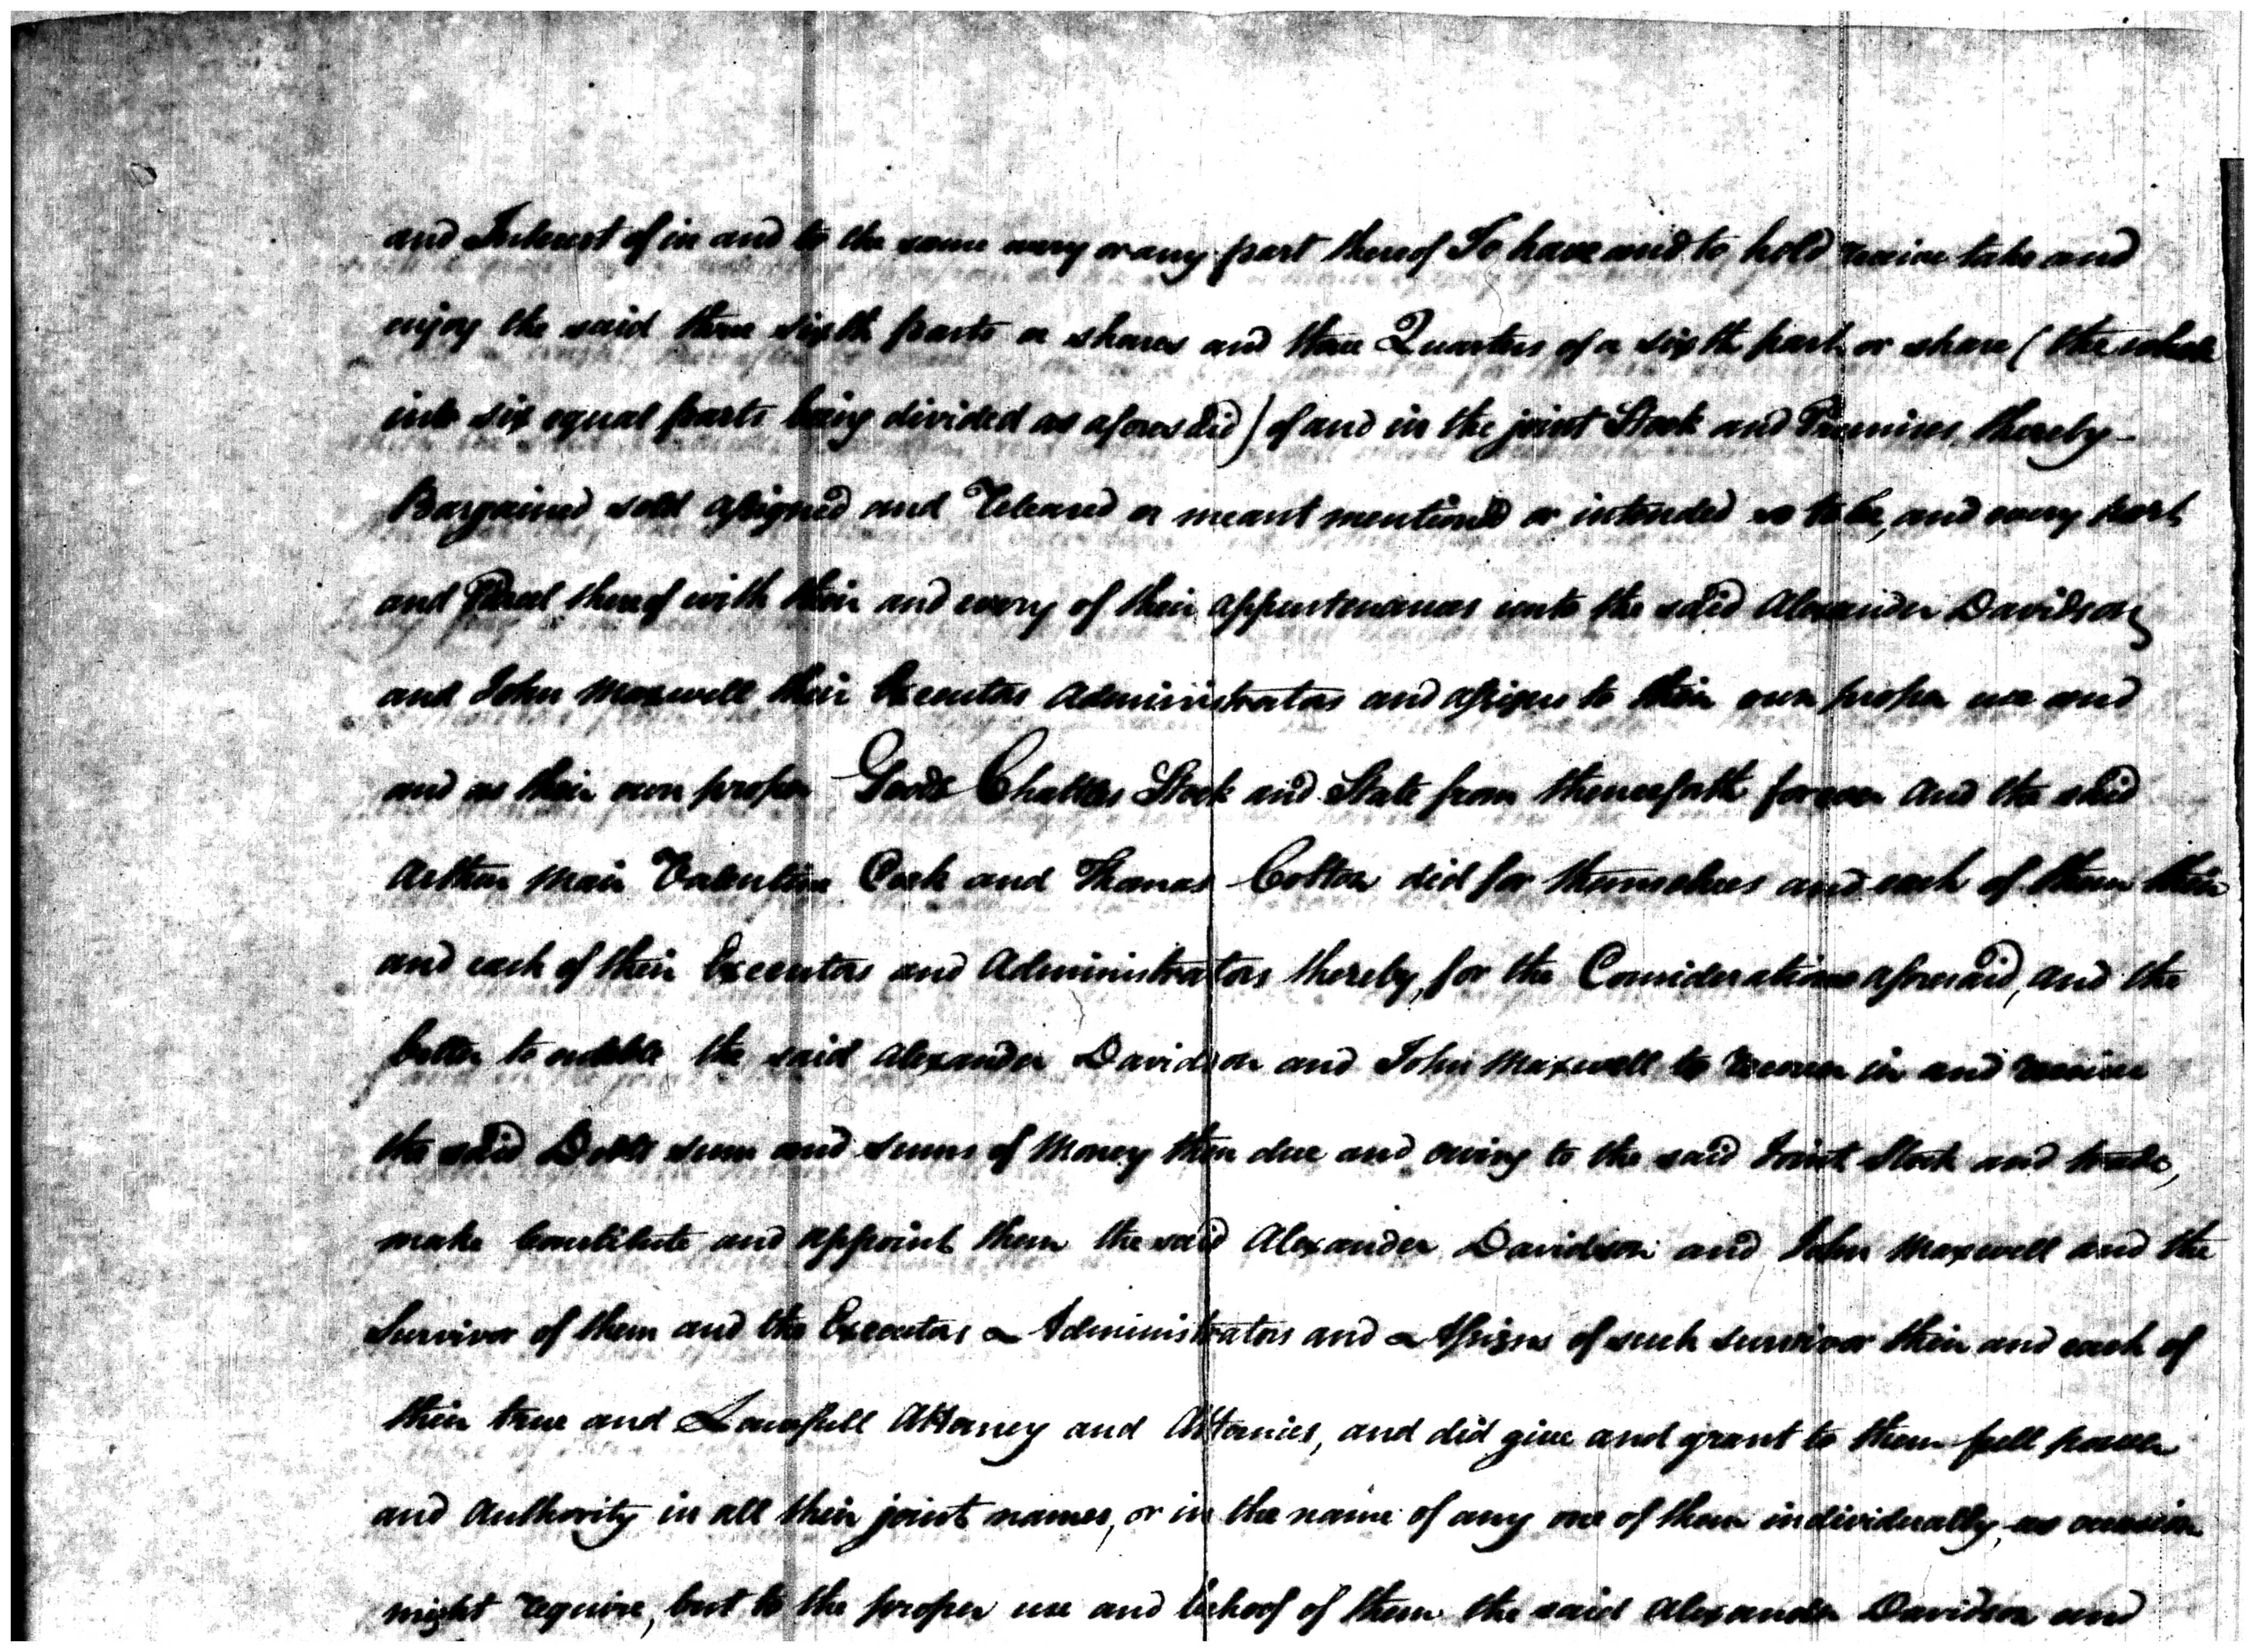 and Interest of in and to the same every or any part thereof To have and to hold receive take and
enjoy the said three sixth parts or shares and three Quarters of a sixth part or share ( the whole
into six equal parts being divided as aforesaid ) of and in the joint Stock and Premises thereby -
Bargained sold assigned and Released or meant mentioned or intended so to be, and every part
and Parcel thereof with their and every of their appurtenances unto the said Alexander Davidson
and John Maxwell their Executors Administrators and assigns to their own proper use and
and as their own proper Goods Chattles Stock and State from thenceforth forever and the said
Arthur Mair Valentine Cork and Thomas Colton did for themselves and each of them their
and each of their Executors and Administrators thereby, for the Considerations aforesaid, and the
better to enable the said Alexander Davidson and John Maxwell to recover in and receive
the said Debts sum and sums of Money then due and owing to the said Joint Stock and trade,
make Constitute and appoint them the said Alexander Davidson and John Maxwell and the
Survivor of them and the Executors or Administrators and or Assigns of such survivor their and each of
their true and Lawfull Attorney and Attornies, and did give and grant to them full power
and Authority in all their joint names, or in the name of any one of them individually, as occasion
might require, but to the proper use and behoof of them the said Alexander Davidson and